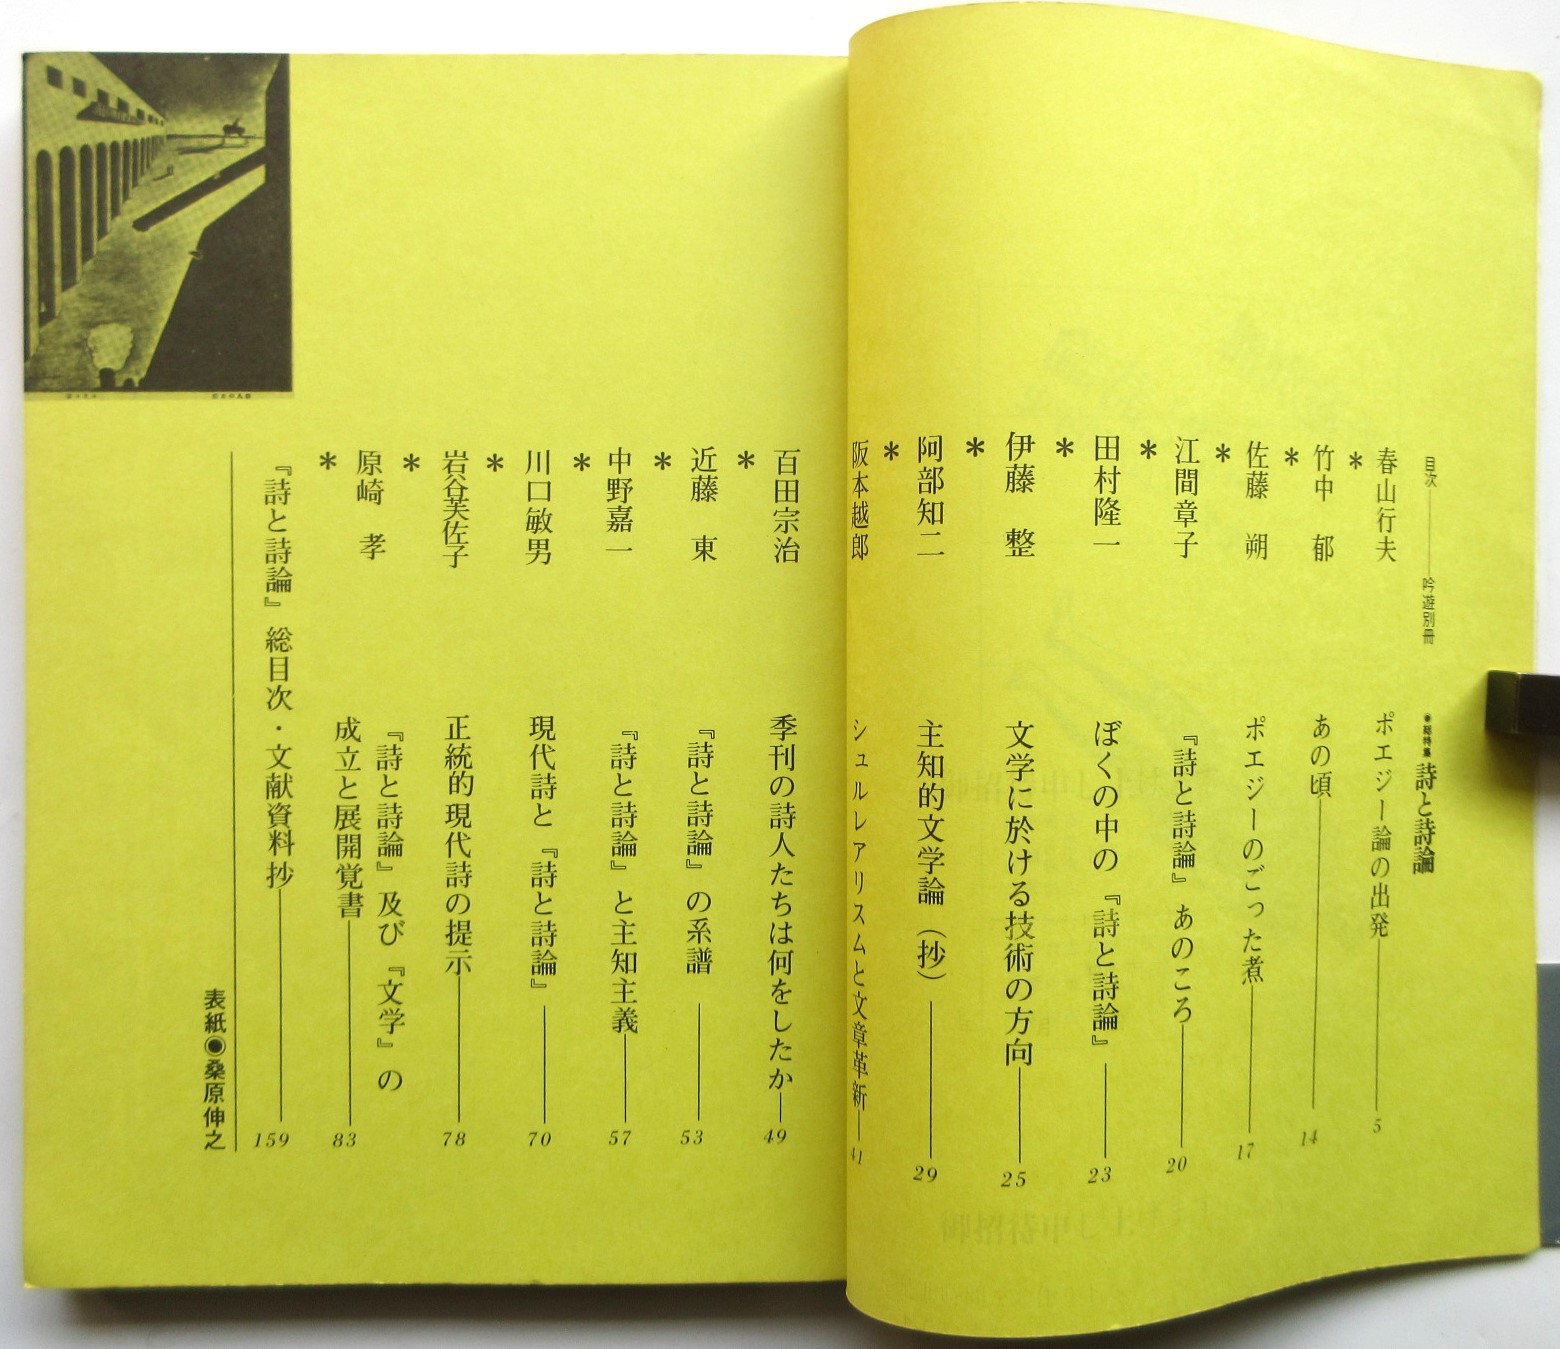 目次――吟遊別冊
◉総特集 詩と詩論
春山行夫 ポエジー論の出発――5
*
竹中 郁 あの頃――14
*
佐藤 朔 ポエジーのごった煮――17
*
江間章子 『詩と詩論』あのころ――20
*
田村隆一 ぼくの中の『詩と詩論』――23
*
伊藤 整 文学に於ける技術の方向――25
*
阿部知二 主知的文学論（抄）――29
*
阪本越郎 シュルレアリスムと文章革新――41
百田宗治 季刊の詩人たちは何をしたか――49
*
近藤 東 『詩と詩論』の系譜――53
*
中野嘉一 『詩と詩論』と主知主義――57
*
川口敏男 現代詩と『詩と詩論』――70
*
岩谷芙佐子 正統的現代詩の提示――78
*
原崎 孝 『詩と詩論』及び『文学』の
成立と展開覚書――83
*
『詩と詩論』総目次・文献資料抄――159
表紙◉桑原伸之